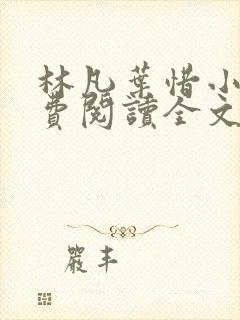 林凡葉惜小
費閱讀全文
嚴丰